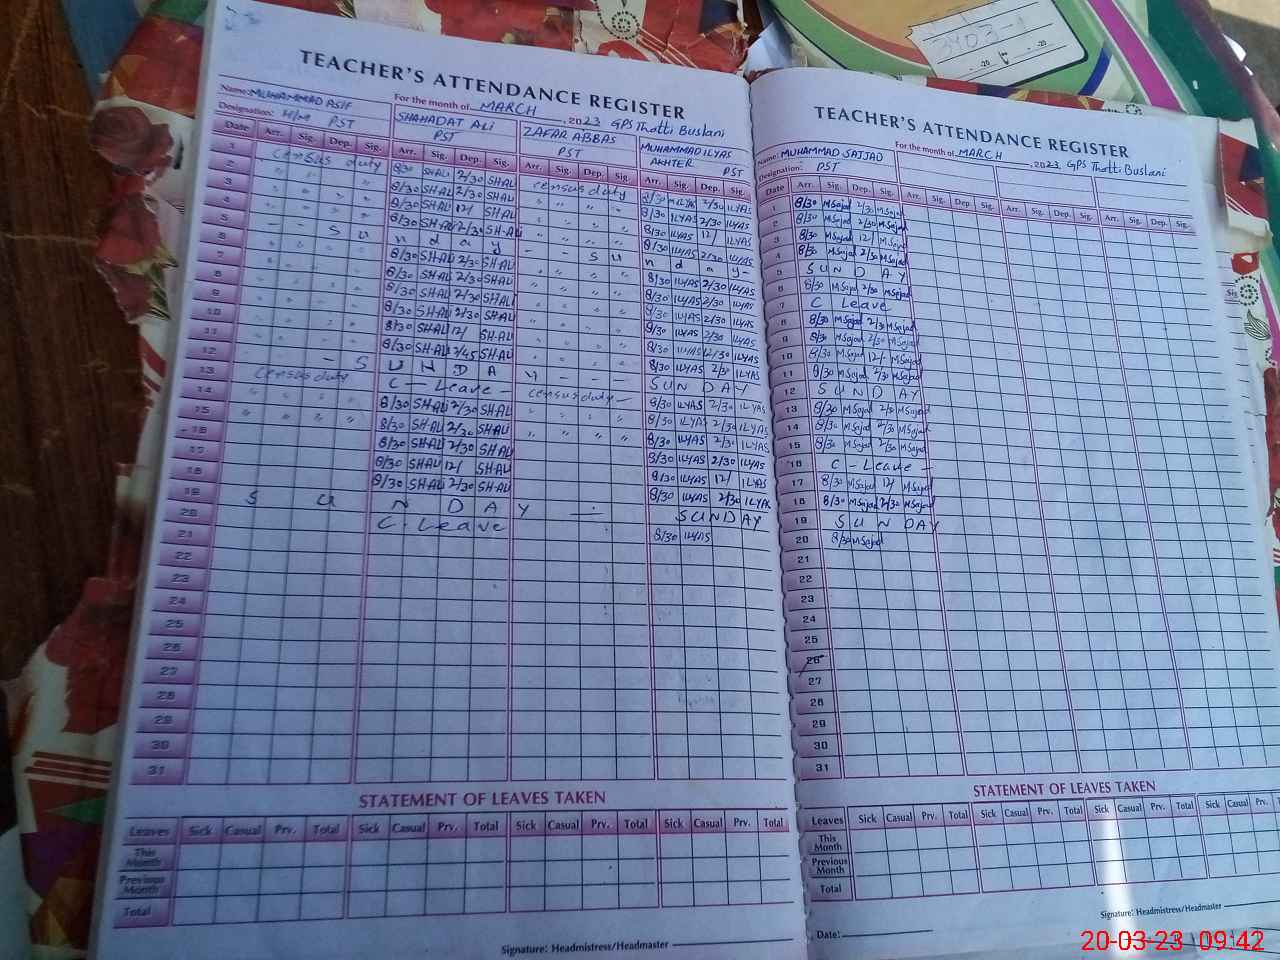 3403
-20 -20
TEACHER'S ATTENDANCE REGISTER
Name: MUHAMMAD ASIF For the month of MARCH, 2023 GPS Thatti Buslani
Designation: H/M PST SHAHADAT ALI PST ZAFAR ABBAS PST MUHAMMAD ILYAS AKHTER PST
Date Arr. Sig. Dep. Sig. Arr. Sig. Dep. Sig. Arr. Sig. Dep. Sig. Arr. Sig. Dep. Sig.
1 census duty 8/30 SHALI 2/30 SHALI census duty 8/30 ILYAS 2/30 ILYAS
2 " " " 8/30 SHALI 2/30 SHALI " " " " 8/30 ILYAS 2/30 ILYAS
3 " " " " 8/30 SHALI 12/ SHALI " " " " 8/30 ILYAS 12/ ILYAS
4 " " " " 8/30 SHALI 2/30 SHALI " " " " 8/30 ILYAS 2/30 ILYAS
5 - - S u n d a y - - S u n d a y -
6 " " " " 8/30 SHALI 2/30 SHALI " " " " 8/30 ILYAS 2/30 ILYAS
7 " " " " 8/30 SHALI 2/30 SHALI " " " " 8/30 ILYAS 2/30 ILYAS
8 " " " " 8/30 SHALI 2/30 SHALI " " " " 8/30 ILYAS 2/30 ILYAS
9 " " " " 8/30 SHALI 2/30 SHALI " " " " 8/30 ILYAS 2/30 ILYAS
10 " " " " 8/30 SHALI 12/ SHALI " " " " 8/30 ILYAS 12/30 ILYAS
11 " " " " 8/30 SHALI 2/45 SHALI " " " " 8/30 ILYAS 2/30 ILYAS
12 - - S U N D A Y - - - SUNDAY
13 census duty C - Leave - census duty - 8/30 ILYAS 2/30 ILYAS
14 " " " " 8/30 SHALI 2/30 SHALI " " " " 8/30 ILYAS 2/30 ILYAS
15 " " " " 8/30 SHALI 2/30 SHALI " " " " 8/30 ILYAS 2/30 ILYAS
16 8/30 SHALI 2/30 SHALI 8/30 ILYAS 2/30 ILYAS
17 8/30 SHALI 12/ SHALI 8/30 ILYAS 12/ ILYAS
18 8/30 SHALI 2/30 SHALI 8/30 ILYAS 2/30 ILYAS
19 S U N D A Y - SUNDAY
20 C - Leave 8/30 ILYAS
21
22
23
24
25
26
27
28
29
30
31
STATEMENT OF LEAVES TAKEN
Leaves Sick Casual Prv. Total Sick Casual Prv. Total Sick Casual Prv. Total Sick Casual Prv. Total
This Month
Previous Month
Total
Signature: Headmistress/Headmaster
TEACHER'S ATTENDANCE REGISTER
Name: MUHAMMAD SAJJAD For the month of MARCH, 2023 GPS Thatti Buslani
Designation: PST
Date Arr. Sig. Dep. Sig. Arr. Sig. Dep. Sig. Arr. Sig. Dep. Sig. Arr. Sig. Dep. Sig.
1 8/30 MSajad 2/30 MSajad
2 8/30 MSajad 2/30 MSajad
3 8/30 MSajad 12/ MSajad
4 8/30 MSajad 2/30 MSajad
5 S U N D A Y
6 8/30 MSajad 2/30 MSajad
7 C Leave
8 8/30 MSajad 2/30 MSajad
9 8/30 MSajad 2/30 MSajad
10 8/30 MSajad 12/ MSajad
11 8/30 MSajad 2/30 MSajad
12 S U N D A Y
13 8/30 MSajad 2/30 MSajad
14 8/30 MSajad 2/30 MSajad
15 8/30 MSajad 2/30 MSajad
16 C - Leave -
17 8/30 MSajad 12/ MSajad
18 8/30 MSajad 2/30 MSajad
19 S U N D A Y
20 8/30 MSajad
21
22
23
24
25
26
27
28
29
30
31
STATEMENT OF LEAVES TAKEN
Leaves Sick Casual Prv. Total Sick Casual Prv. Total Sick Casual Prv. Total Sick Casual
This Month
Previous Month
Total
Signature: Headmistress/Headmaster
Date:
20-03-23 09:42